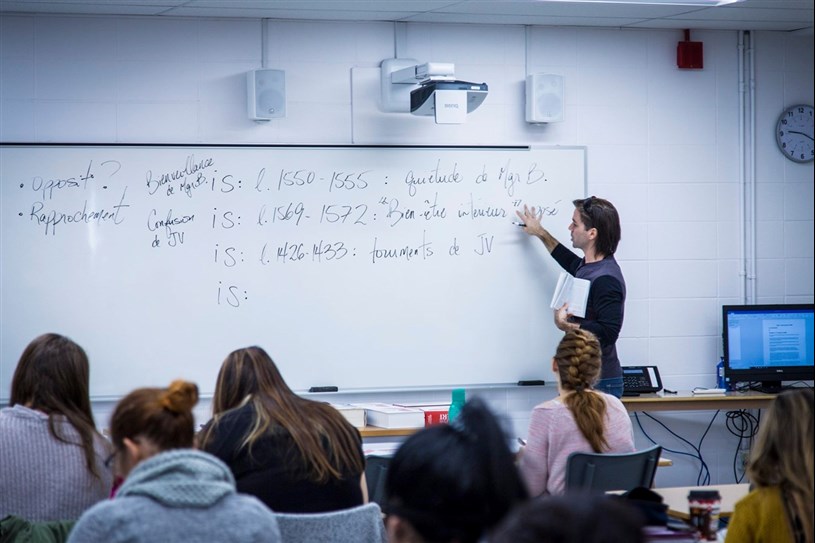 • Opposit. ?
• Rapprochement
Bienveillance
de Mgr B.
Confusion
de JV
is: l. 1550-1555 : quiétude de Mgr B.
is: l. 1569-1572 : "Bien-être intérieur"
is: l. 1426-1433 : tourments de JV
is: